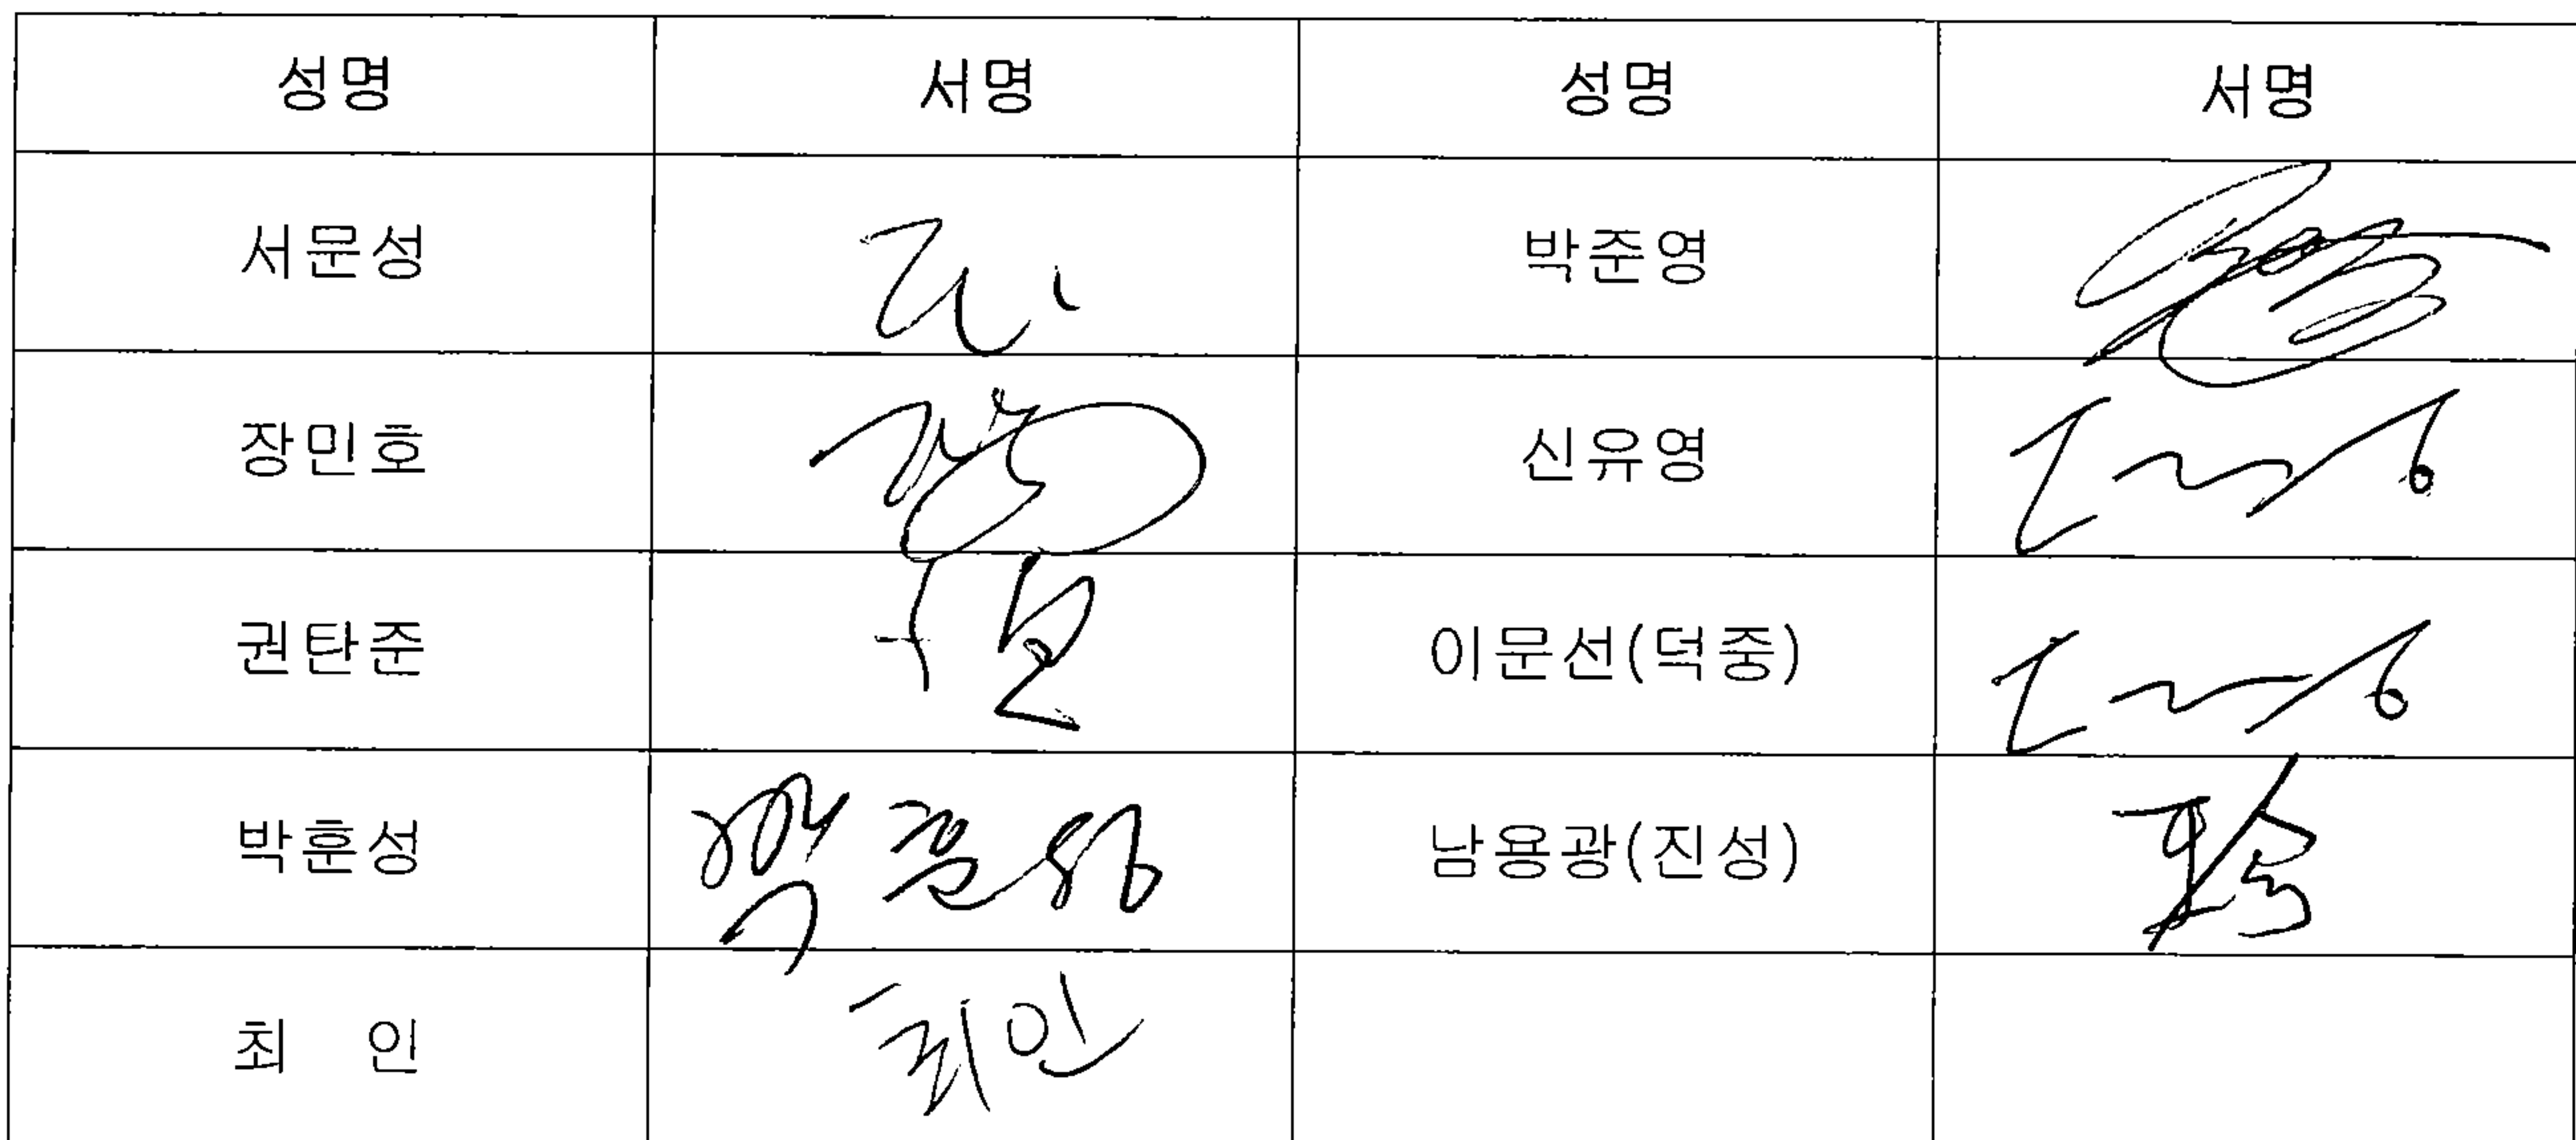 성명 서명 성명 서명
서문성 박준영
장민호 신유영
권탄준 이문선(덕중)
박훈성 박훈성 남용광(진성)
최 인 최인